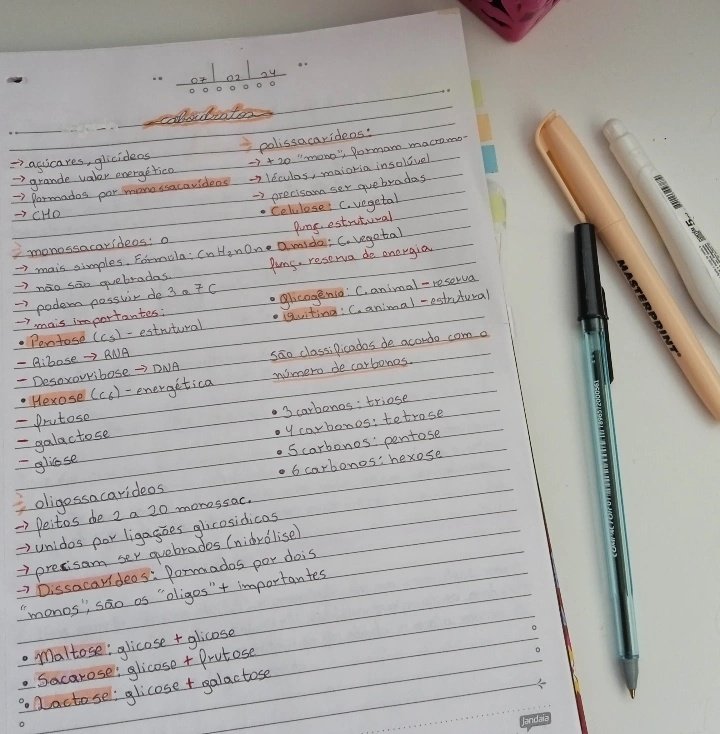 07 02 24
carboidratos
→ açúcares, glicídeos
→ grande valor energético
→ formados por monossacarídeos
→ CHO
→ monossacarídeos: o
→ mais simples, Fórmula: CnH2nOn
→ não são quebradas
→ podem possuir de 3 a 7 C
→ mais importantes:
• Pentose (C5) - estrutural
- Ribose → RNA
- Desoxorribose → DNA
• Hexose (C6) - energética
- frutose
- galactose
- glicose
→ oligossacarídeos
→ feitos de 2 a 20 monossac.
→ unidos por ligações glicosídicas
→ precisam ser quebrados (hidrólise)
→ Dissacarídeos: formados por dois
"monos", são os "oligos" + importantes
• Maltose: glicose + glicose
• Sacarose: glicose + frutose
• Lactose: glicose + galactose
→ polissacarídeos:
→ +20 "mono", formam macromo-
→ léculas, maioria insolúvel
→ precisam ser quebradas
• Celulose: C. vegetal
funç. estrutural
• Amido: C. vegetal
funç. reserva de energia
• glicogênio: C. animal - reserva
• Quitina: C. animal - estrutural
são classificados de acordo com o
número de carbonos
• 3 carbonos: triose
• 4 carbonos: tetrose
• 5 carbonos: pentose
• 6 carbonos: hexose
Jandaia
MASTERPRINT